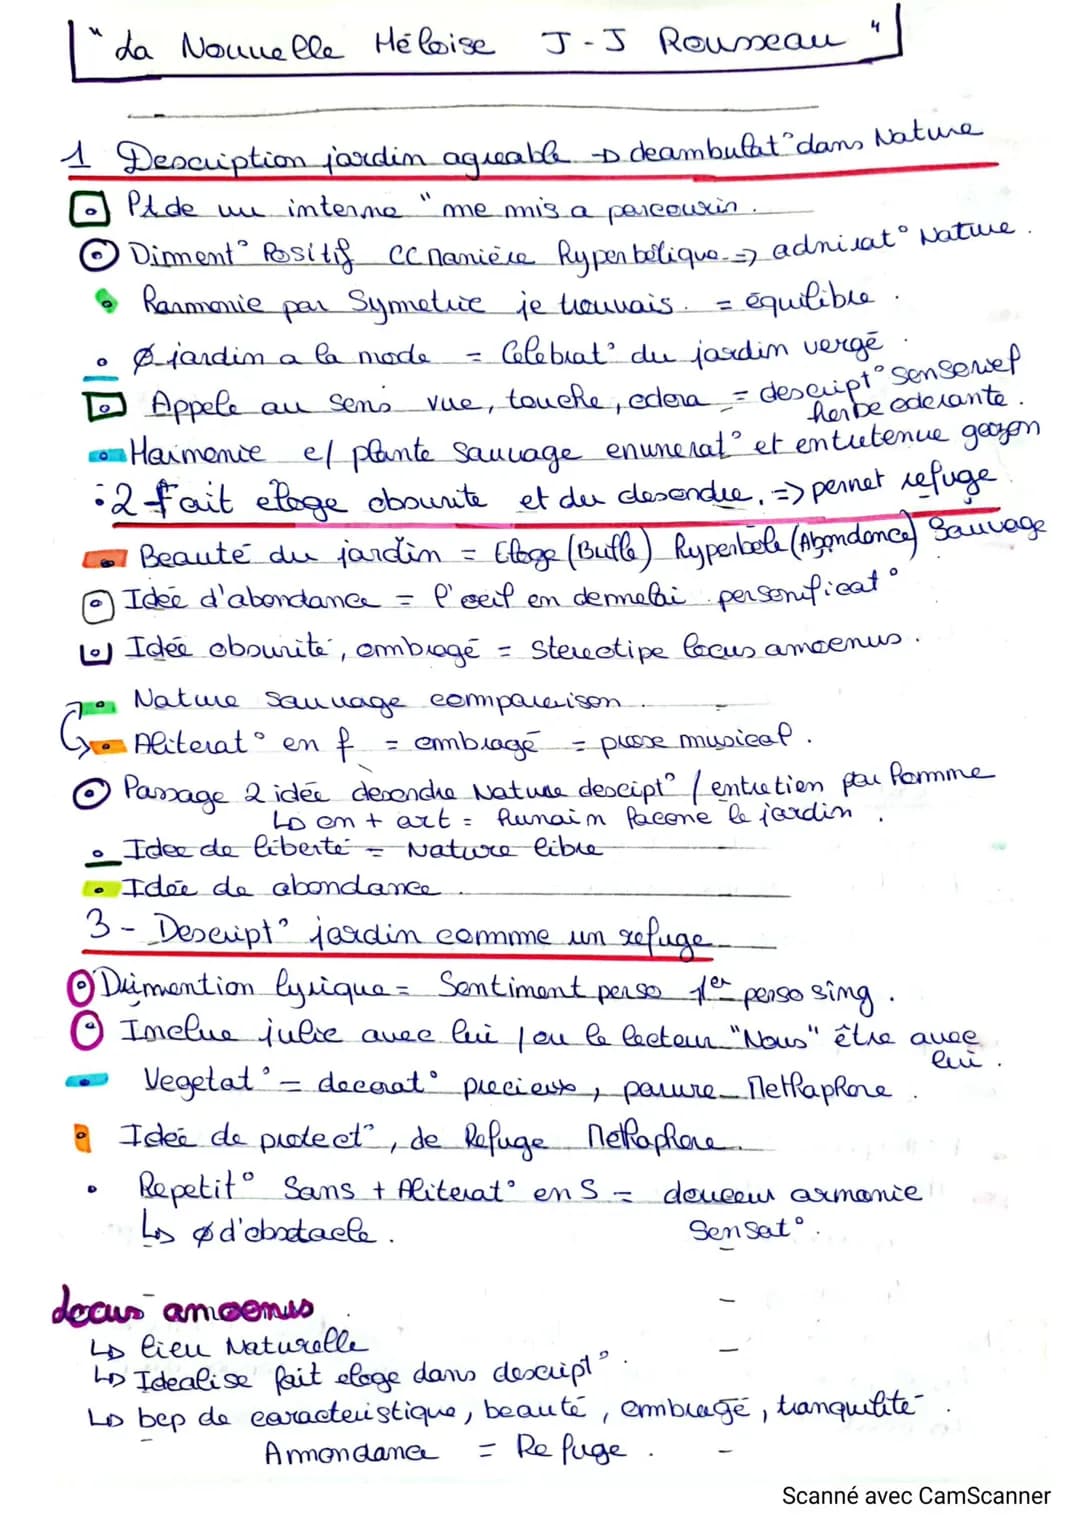 "La Nouvelle Héloise J-J Rousseau"
1 Description jardin agreable → deambulat° dans Nature
Pt de vu interne "me mis a parcourir.
Diment° Positif CC Manière hyperbolique => admirat° Nature.
Harmonie par Symetrie je trouvais. = équilibre.
Ø jardin a la mode = Celebrat° du jardin vergé.
Appele au sens vue, touche, odora = descript° sensorief
herbe odorante.
Harmonie e/ plante sauvage enumerat° et entretenue gazon
2 fait eloge obsurite et du desordre. => permet refuge
Beauté du jardin = Eloge (Buffe) hyperbole (Abondance) Sauvage
Idée d'abondance = l'oeil en demelai personificat°
Idée obsurité, ombragé = Stereotipe locus amoenus.
Nature sauvage comparaison.
Aliterat° en f = ombragé = prose musical.
Passage 2 idée desordre Nature descipt° / entretien par homme
↳ on + art = humain facone le jardin.
Idee de liberté = Nature libre
Idée de abondance.
3 - Descript° jardin comme un refuge
Dimention lyrique = Sentiment perso 1er perso sing.
Inclue julie avec lui / ou le lecteur "Nous" être avec
lui.
Vegetat° = decorat° precieux, parure Methaphore.
Idée de protect°, de Refuge Methaphore.
Repetit° Sans + Aliterat° en S = douceur armonie
↳ Ø d'obstacle.
Sensat°.
locus amoenus
↳ lieu Naturelle
↳ Idealise fait eloge dans descript°.
↳ bcp de caracteristique, beauté, ombragé, tranquilité.
Amondance = Refuge.
Scanné avec CamScanner